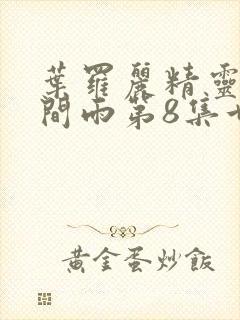 葉羅麗精靈
間雨第8集
黃金蛋炒飯